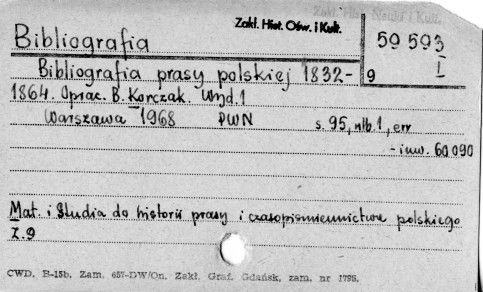 Zakł. Hist. Ośw. i Kult.
Bibliografia
59 593
I
Bibliografia prasy polskiej 1832-
9
1864. Oprac. B. Korczak. Wyd. 1
Warszawa 1968 PWN s. 95, nlb. 1, err
- inw. 60 090
Mat. i Studia do historii prasy i czasopiśmiennictwa polskiego
Z. 9
CWD. B-15b. Zam. 657-DW/On. Zakł. Graf. Gdańsk, zam. nr 1795.